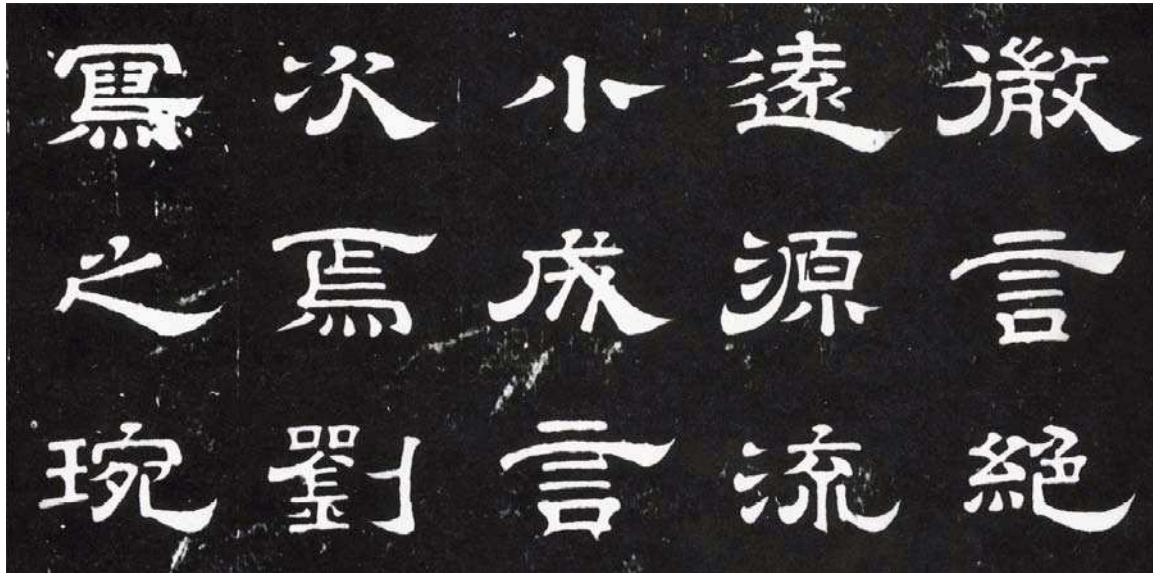 微言絕
遠源流
小成言
次焉劉
寫之琬